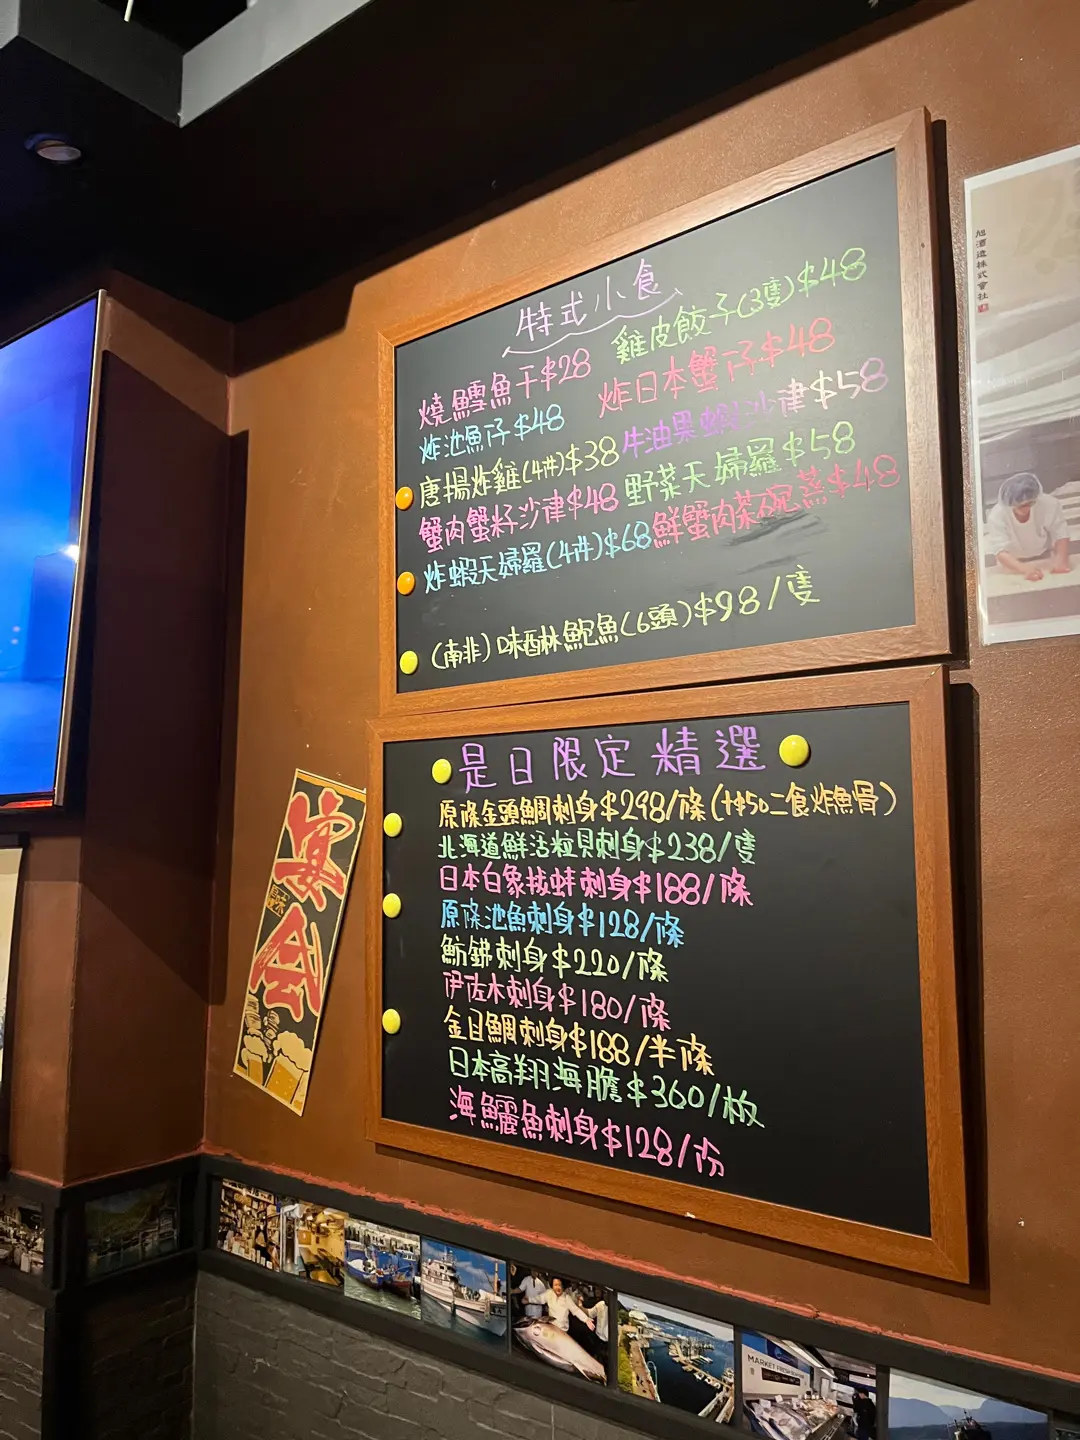 特式小食
燒鱈魚干$28
雞皮餃子(3隻)$48
炸池魚仔$48
炸日本蟹仔$48
唐揚炸雞(4件)$38
牛油果蝦沙律$58
蟹肉蟹籽沙律$48
野菜天婦羅$58
炸蝦天婦羅(4件)$68
鮮蟹肉茶碗蒸$48
(南非)味醂鮑魚(6頭)$98/隻
是日限定精選
原條金頭鯛刺身$298/條(+$50二食炸魚骨)
北海道鮮活粒貝刺身$238/隻
日本白象拔蚌刺身$188/條
原條池魚刺身$128/條
魴鮄刺身$220/條
伊佐木刺身$180/條
金目鯛刺身$188/半條
日本高翔海膽$360/板
海鱺魚刺身$128/份
宴会
旭酒造株式會社
MARKET FRESH